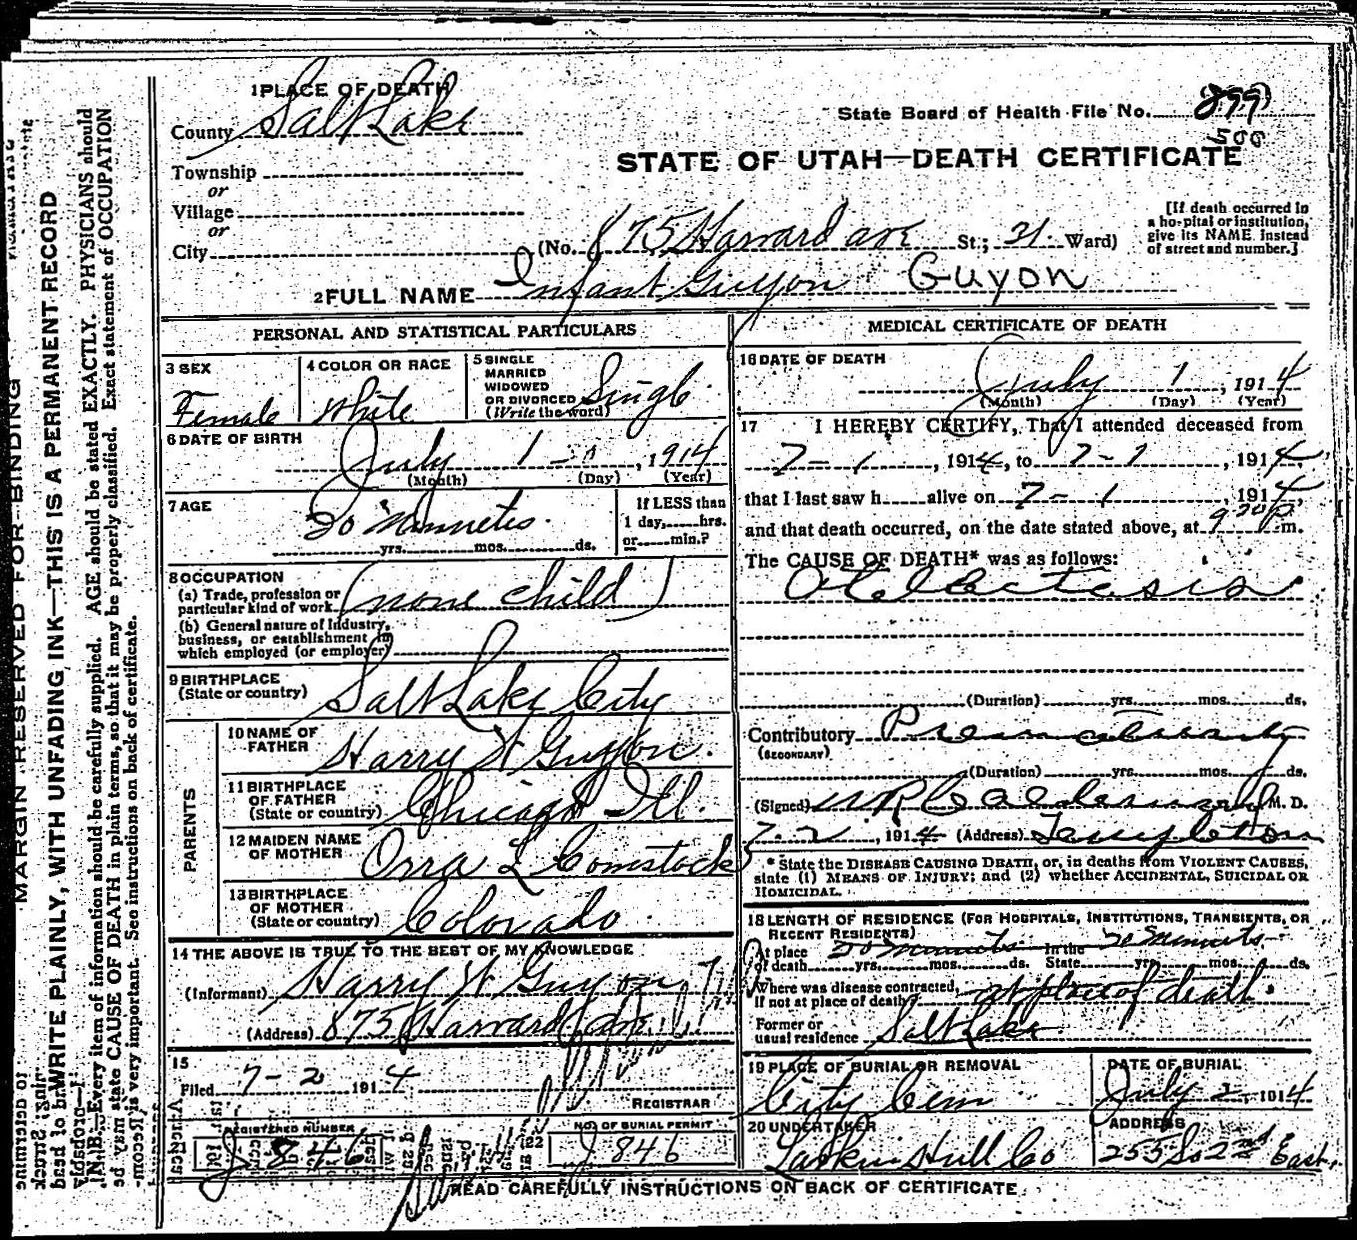 1 PLACE OF DEATH
County Salt Lake
State Board of Health File No. 899
500
Township
or
Village
or
City
STATE OF UTAH—DEATH CERTIFICATE
(No. 875 Harvard ave St.; 31. Ward)
[If death occurred in a hospital or institution, give its NAME instead of street and number.]
2 FULL NAME Infant Guyon Guyon
PERSONAL AND STATISTICAL PARTICULARS
3 SEX
Female
4 COLOR OR RACE
White
5 SINGLE
MARRIED
WIDOWED
OR DIVORCED
(Write the word)
Single
6 DATE OF BIRTH
July 1 , 1914
(Month) (Day) (Year)
7 AGE
20 Minnetes.
yrs. mos. ds.
If LESS than
1 day, hrs.
or min.?
8 OCCUPATION
(a) Trade, profession or
particular kind of work (none child)
(b) General nature of Industry,
business, or establishment in
which employed (or employer)
9 BIRTHPLACE
(State or country) Salt Lake City
PARENTS
10 NAME OF
FATHER Harry W Guyon.
11 BIRTHPLACE
OF FATHER
(State or country) Chicago Ill.
12 MAIDEN NAME
OF MOTHER Orra L Comstock
13 BIRTHPLACE
OF MOTHER
(State or country) Colorado
14 THE ABOVE IS TRUE TO THE BEST OF MY KNOWLEDGE
(Informant) Harry W Guyon
(Address) 875 Harvard
15
Filed 7-2 1914
REGISTRAR
REGISTERED NUMBER
J 846
NO. OF BURIAL PERMIT
J 846
MEDICAL CERTIFICATE OF DEATH
16 DATE OF DEATH
July 1 , 1914
(Month) (Day) (Year)
17 I HEREBY CERTIFY, That I attended deceased from
7-1 , 1914, to 7-1 , 1914,
that I last saw h alive on 7-1 , 1914,
and that death occurred, on the date stated above, at 9 30 P m.
The CAUSE OF DEATH* was as follows:
Atelectasis
(Duration) yrs. mos. ds.
Contributory Prematurity
(SECONDARY)
(Duration) yrs. mos. ds.
(Signed) M. D.
7-2 , 1914 (Address) Templeton
* State the DISEASE CAUSING DEATH, or, in deaths from VIOLENT CAUSES,
state (1) MEANS OF INJURY; and (2) whether ACCIDENTAL, SUICIDAL OR
HOMICIDAL.
18 LENGTH OF RESIDENCE (FOR HOSPITALS, INSTITUTIONS, TRANSIENTS, OR
RECENT RESIDENTS)
At place of death 20 Minnuts yrs. mos. ds. In the State 20 Minnuts yrs. mos. ds.
Where was disease contracted,
if not at place of death? at place of death.
Former or
usual residence Salt Lake
19 PLACE OF BURIAL OR REMOVAL
City Cem
DATE OF BURIAL
July 2 1914
20 UNDERTAKER
Larkin Hull Co
ADDRESS
255 So 2nd East.
READ CAREFULLY INSTRUCTIONS ON BACK OF CERTIFICATE
MARGIN RESERVED FOR BINDING
WRITE PLAINLY, WITH UNFADING INK—THIS IS A PERMANENT RECORD
N.B.—Every item of information should be carefully supplied. AGE should be stated EXACTLY. PHYSICIANS should
state CAUSE OF DEATH in plain terms, so that it may be properly classified. Exact statement of OCCUPATION
is very important. See instructions on back of certificate.